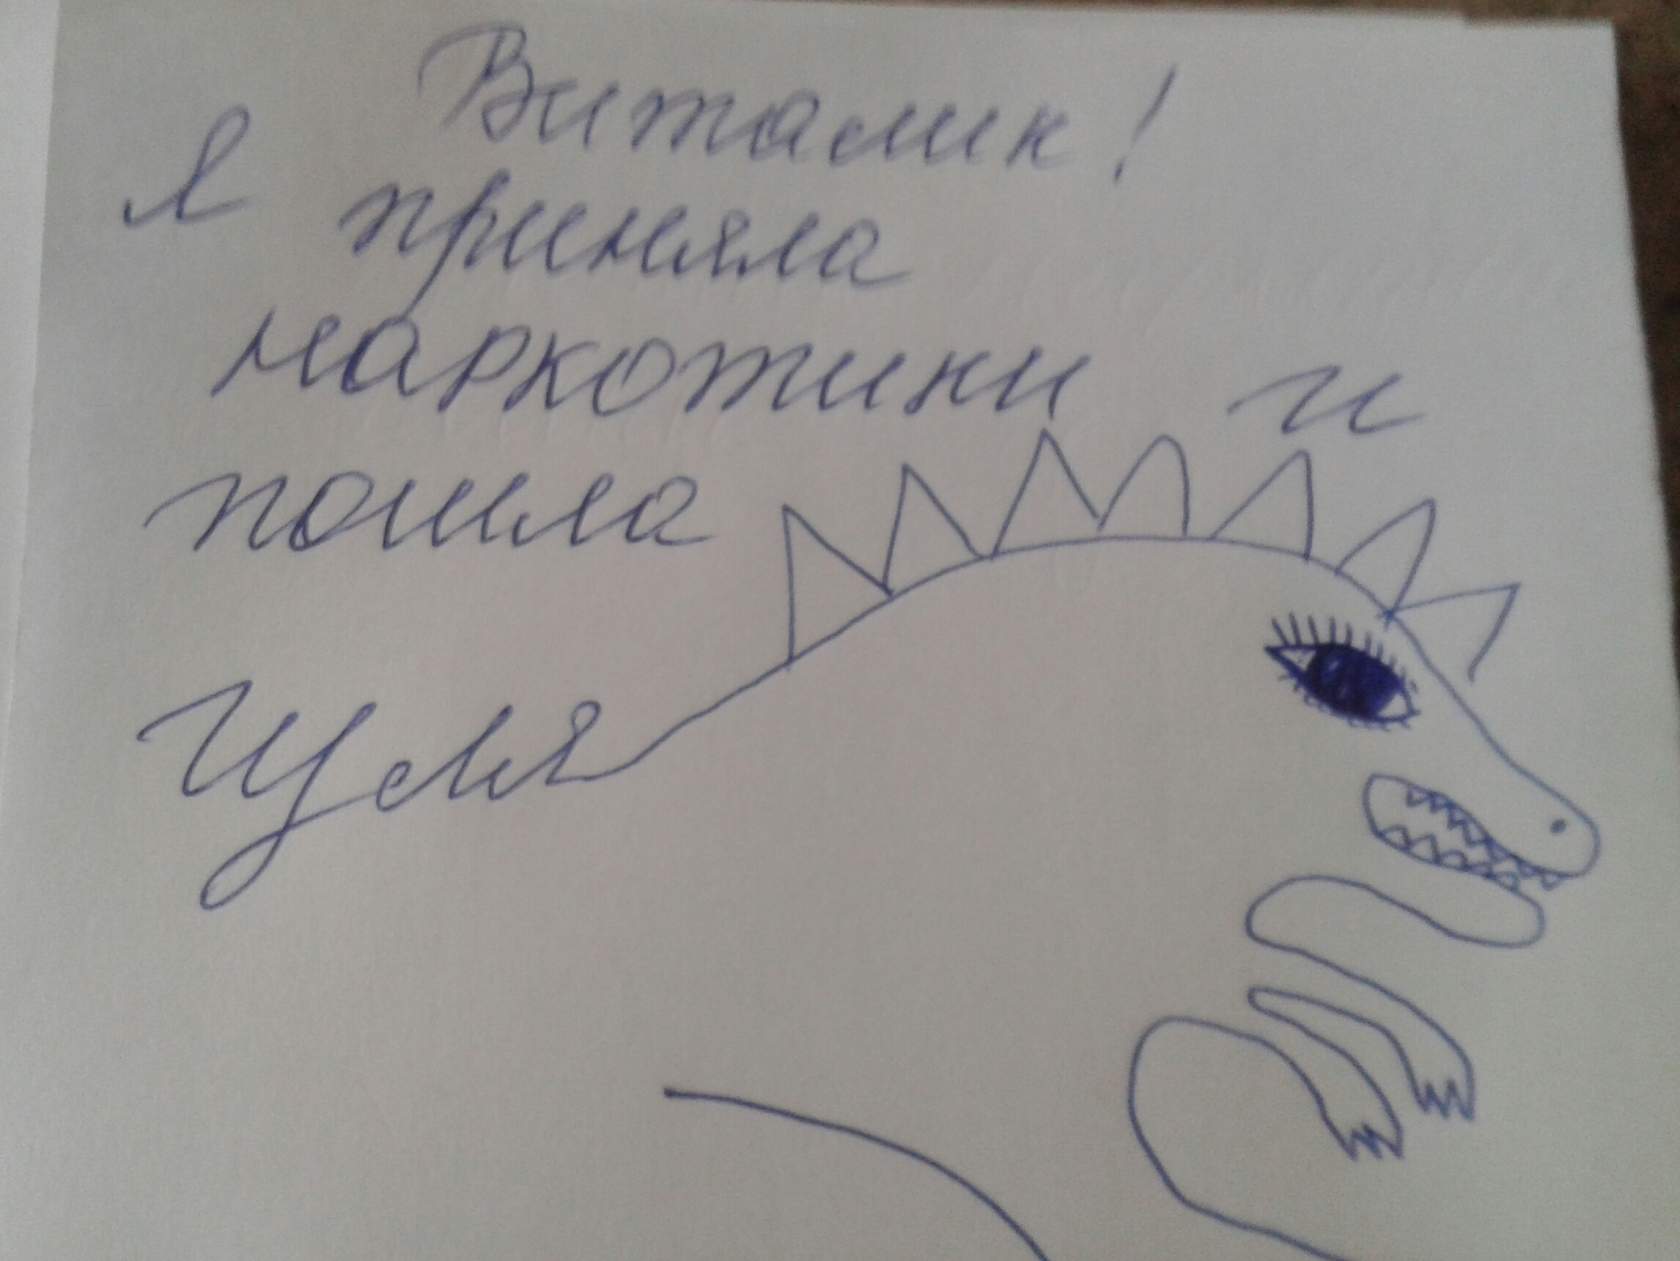 Виталик!
Я приняла
наркотики и
пошла